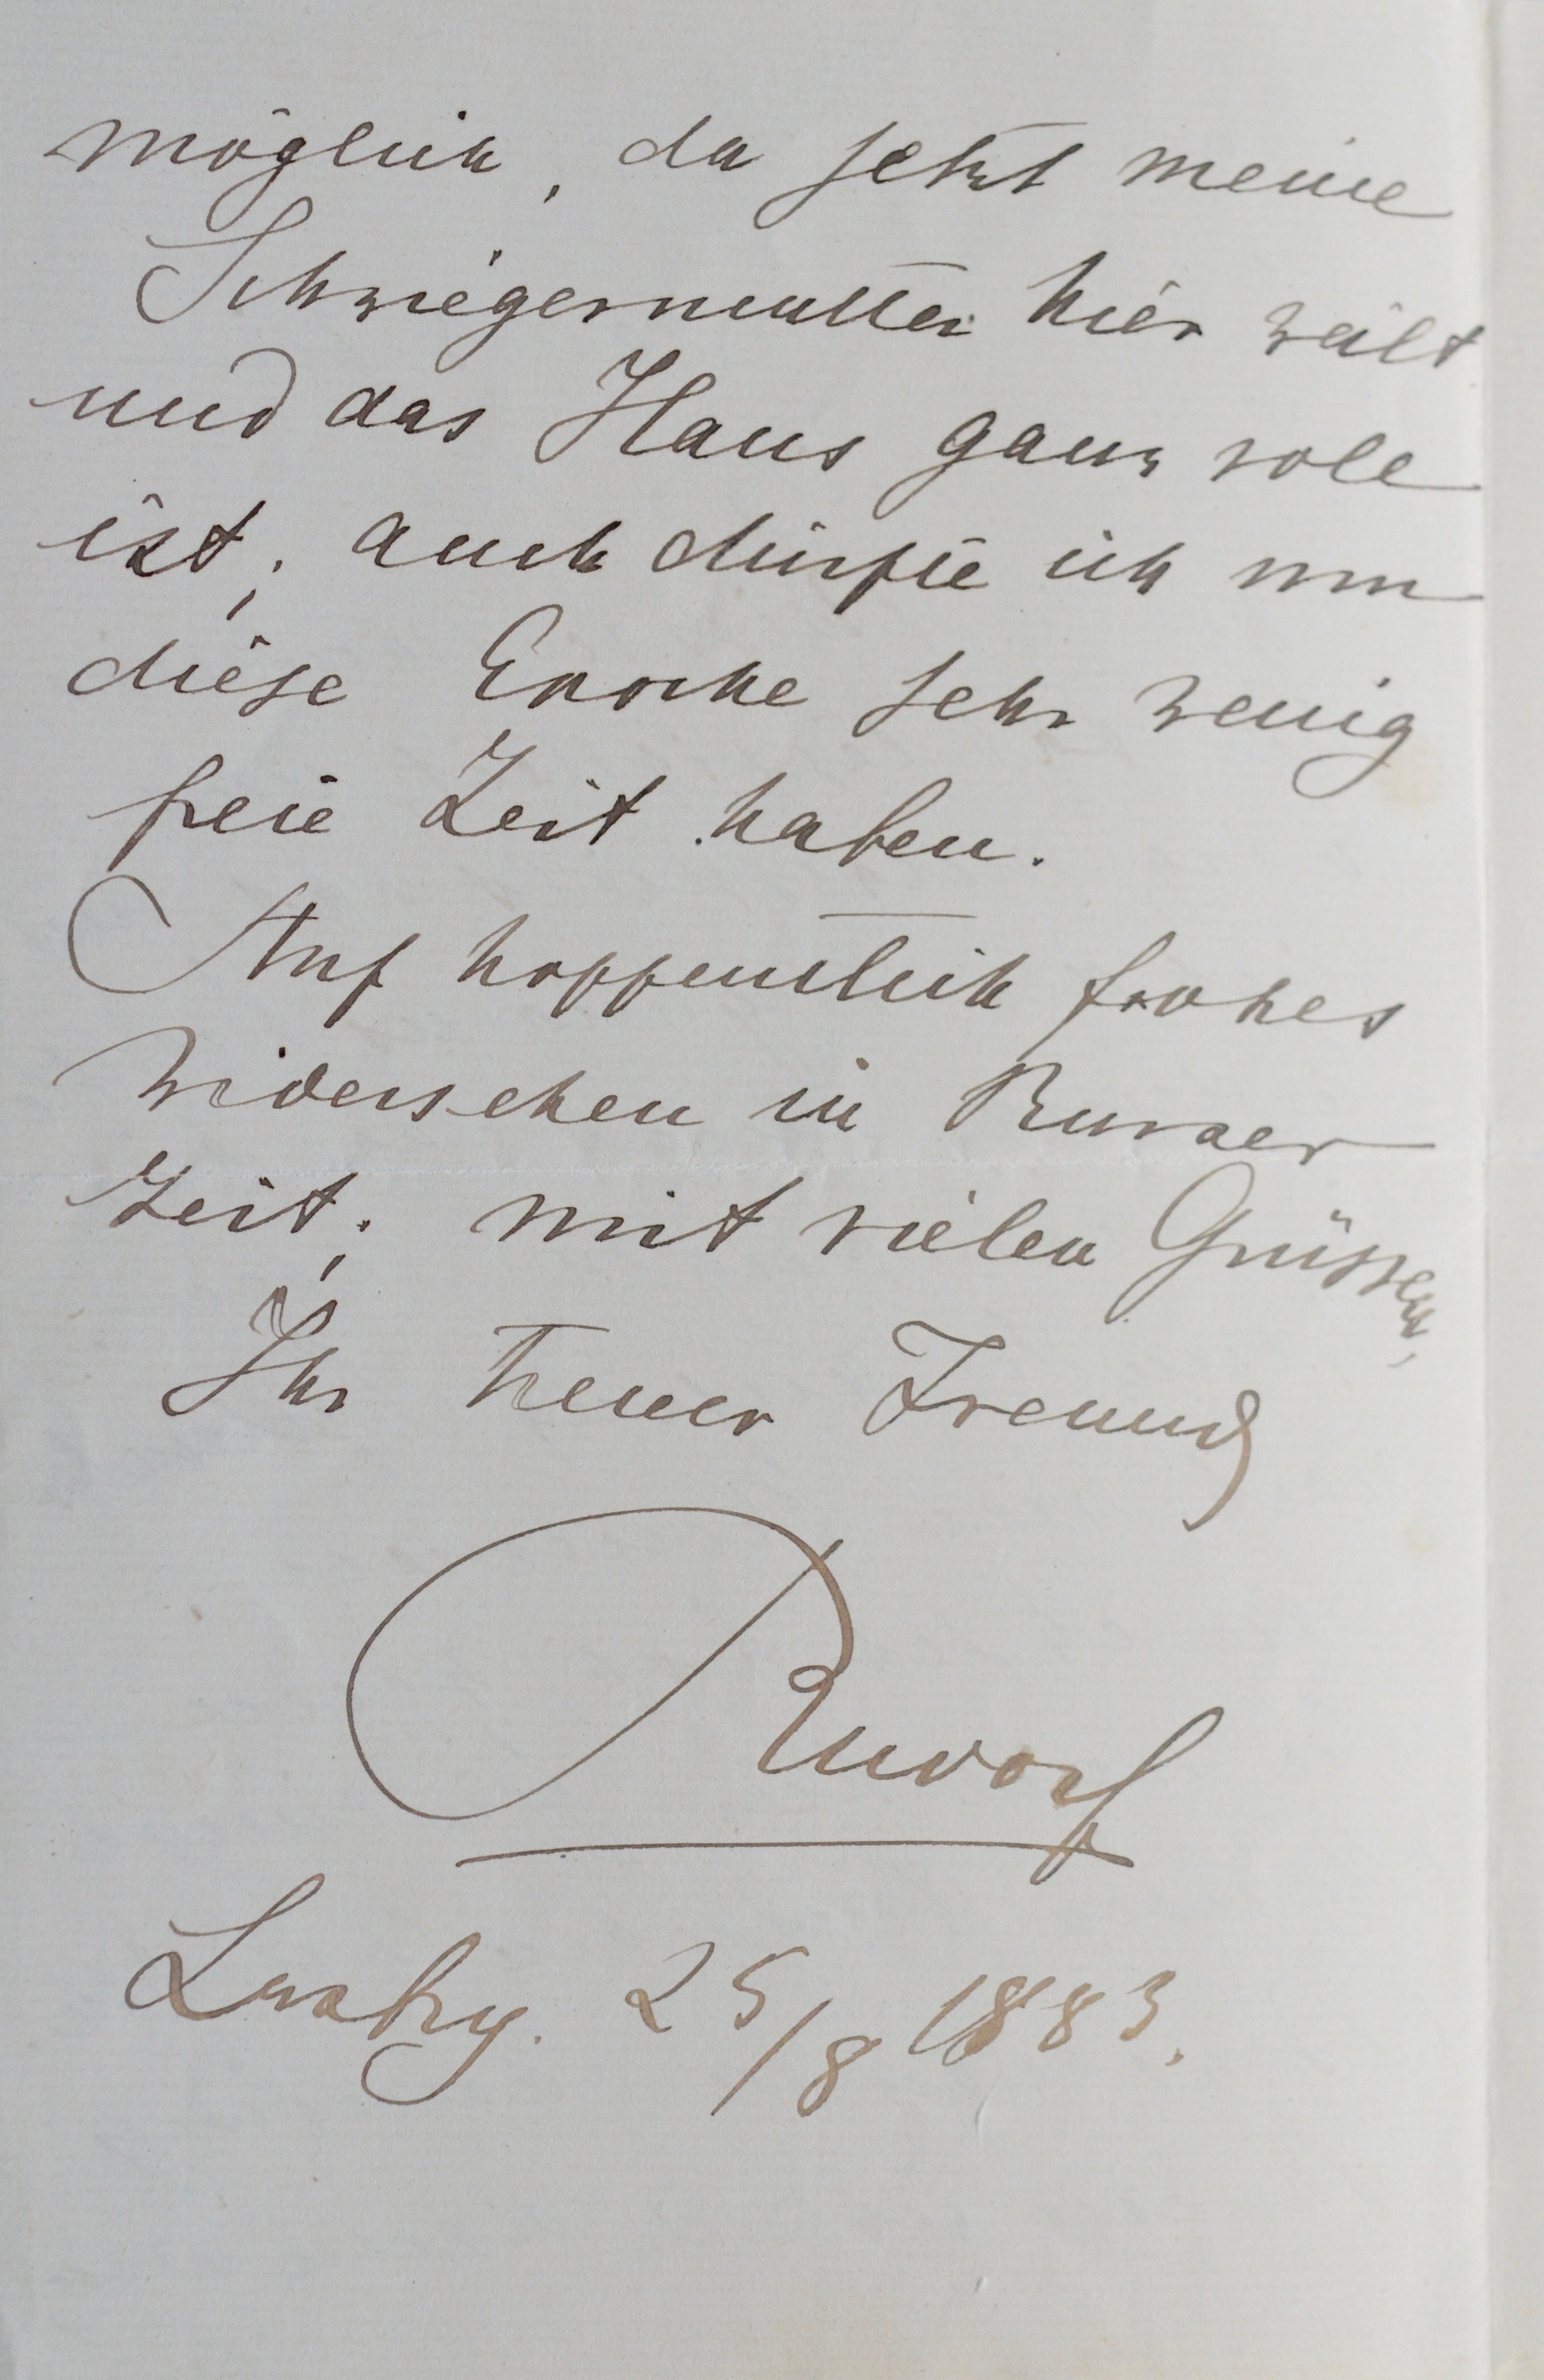 möglich, da jetzt meine
Schwiegermutter hier weilt
und das Haus ganz voll
ist; auch dürfte ich um
diese Epoche sehr wenig
freie Zeit haben.
Auf hoffentlich frohes
Widersehen in Kurzer
Zeit; mit vielen Grüssen,
Ihr treuer Freund
Rudolf
Laxbg. 25/8 1883.